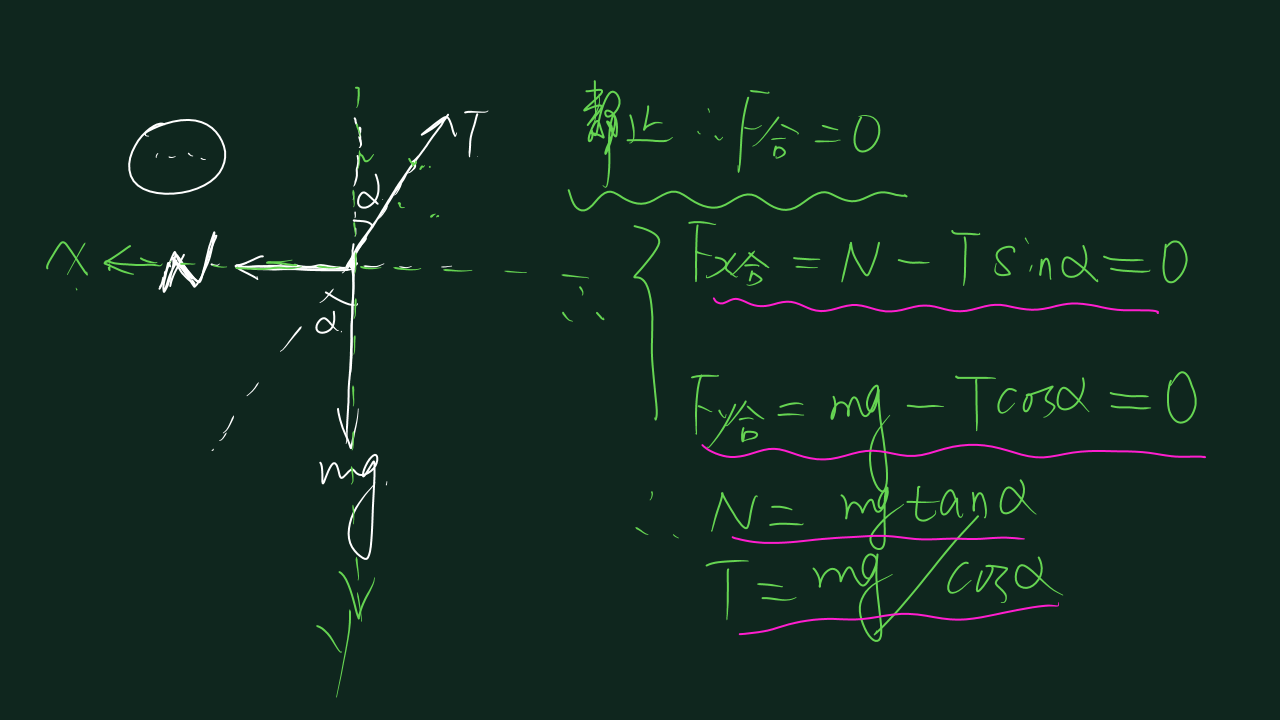 T
α
X
N
α
mg
y
静止 ∴ F合 = 0
∴ { Fx合 = N - T sinα = 0
Fy合 = mg - T cosα = 0
∴ N = mg tanα
T = mg / cosα